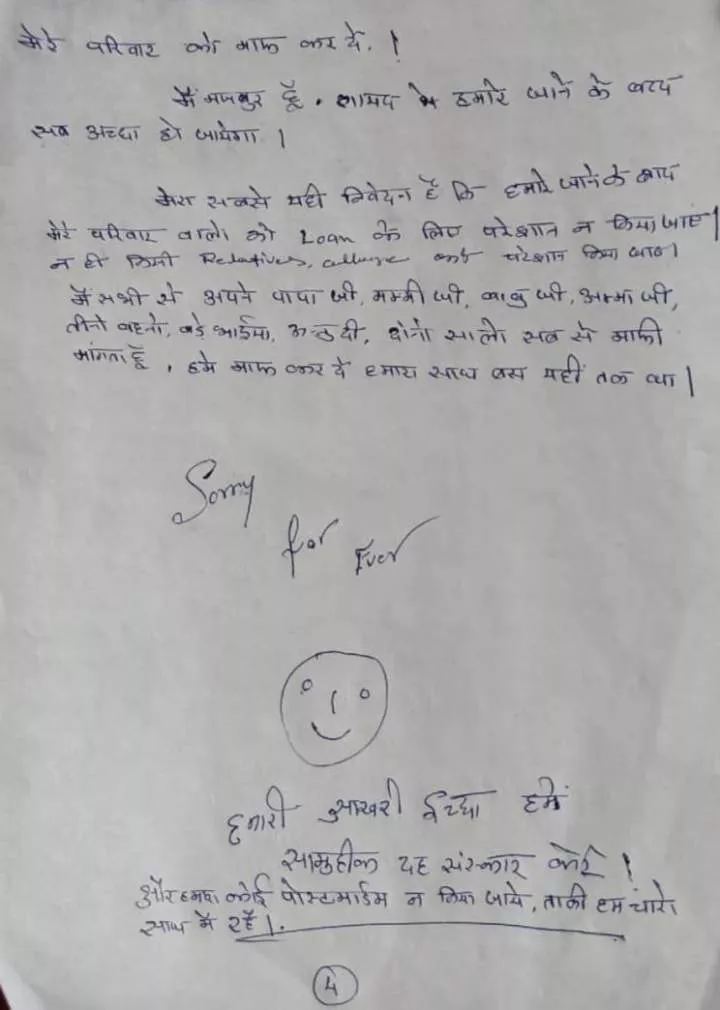 मेरे परिवार को माफ कर दे. !
मैं मजबुर हूँ. शायद हमारे जाने के बाद
सब अच्छा हो जायेगा ।
मेरा सबसे यही निवेदन है कि हमारे जाने के बाद
मेरे परिवार वालो को Loan के लिए परेशान न किया जाए।
न ही किसी Relatives, को परेशान किया जाए।
मैं सभी से अपने पापा जी, मम्मी जी, बाबु जी, अम्मा जी,
तीनो बहनो, बड़े भाईया, दी, दोनो सालो सब से माफी
मांगता हूँ, हमे माफ कर दे हमारा साथ बस यहीं तक था।
Sorry
for
Ever
हमारी आखरी ईच्छा हमें
सामुहीक दाह संस्कार करे !
और हमारा कोई पोस्टमार्डम न किया जाये, ताकी हम चारो
साथ में रहें।.
4